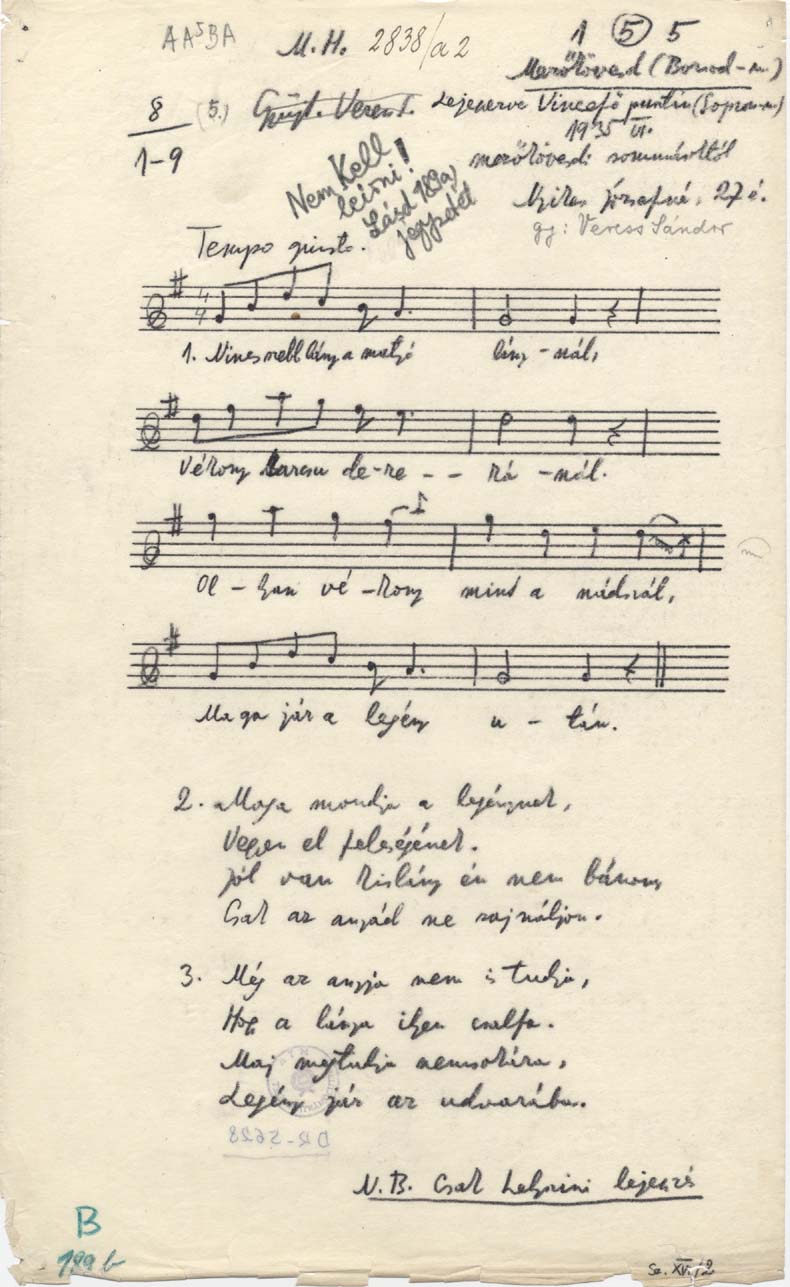 AA⁵BA
M. H. 2838/a2
1 ⑤ 5
Mezőkövesd (Borsod-m.)
8 (5.) Gyűjt. Veress S. Lejegyezve Vincefő pusztán (Sopron-m.)
1-9
1935 VI.
mezőkövesdi sommásoktól
Nyitas Józsefné, 27 é.
gy: Veress Sándor
Nem Kell
leírni!
Lásd 189a)
jegyzetét
Tempo giusto.
4/4
1. Nincs szebb lány a matyó lány-nál,
Vékony karcsu de-re- - ká-nál.
Ol-yan vé-kony mint a nádszál,
Maga jár a legény u-tán.
2. Maga mondja a legénynek,
Vegye el feleségének.
Jól van kislány én nem bánom
Csak az anyád ne sajnáljon.
3. Még az anyja nem is tudja,
Hogy a lánya ilyen csalfa.
Maj megtudja nemsokára,
Legény jár az udvarába.
N.B. Csak helyszini lejegyzés
B
189 b
Sz. XV./2